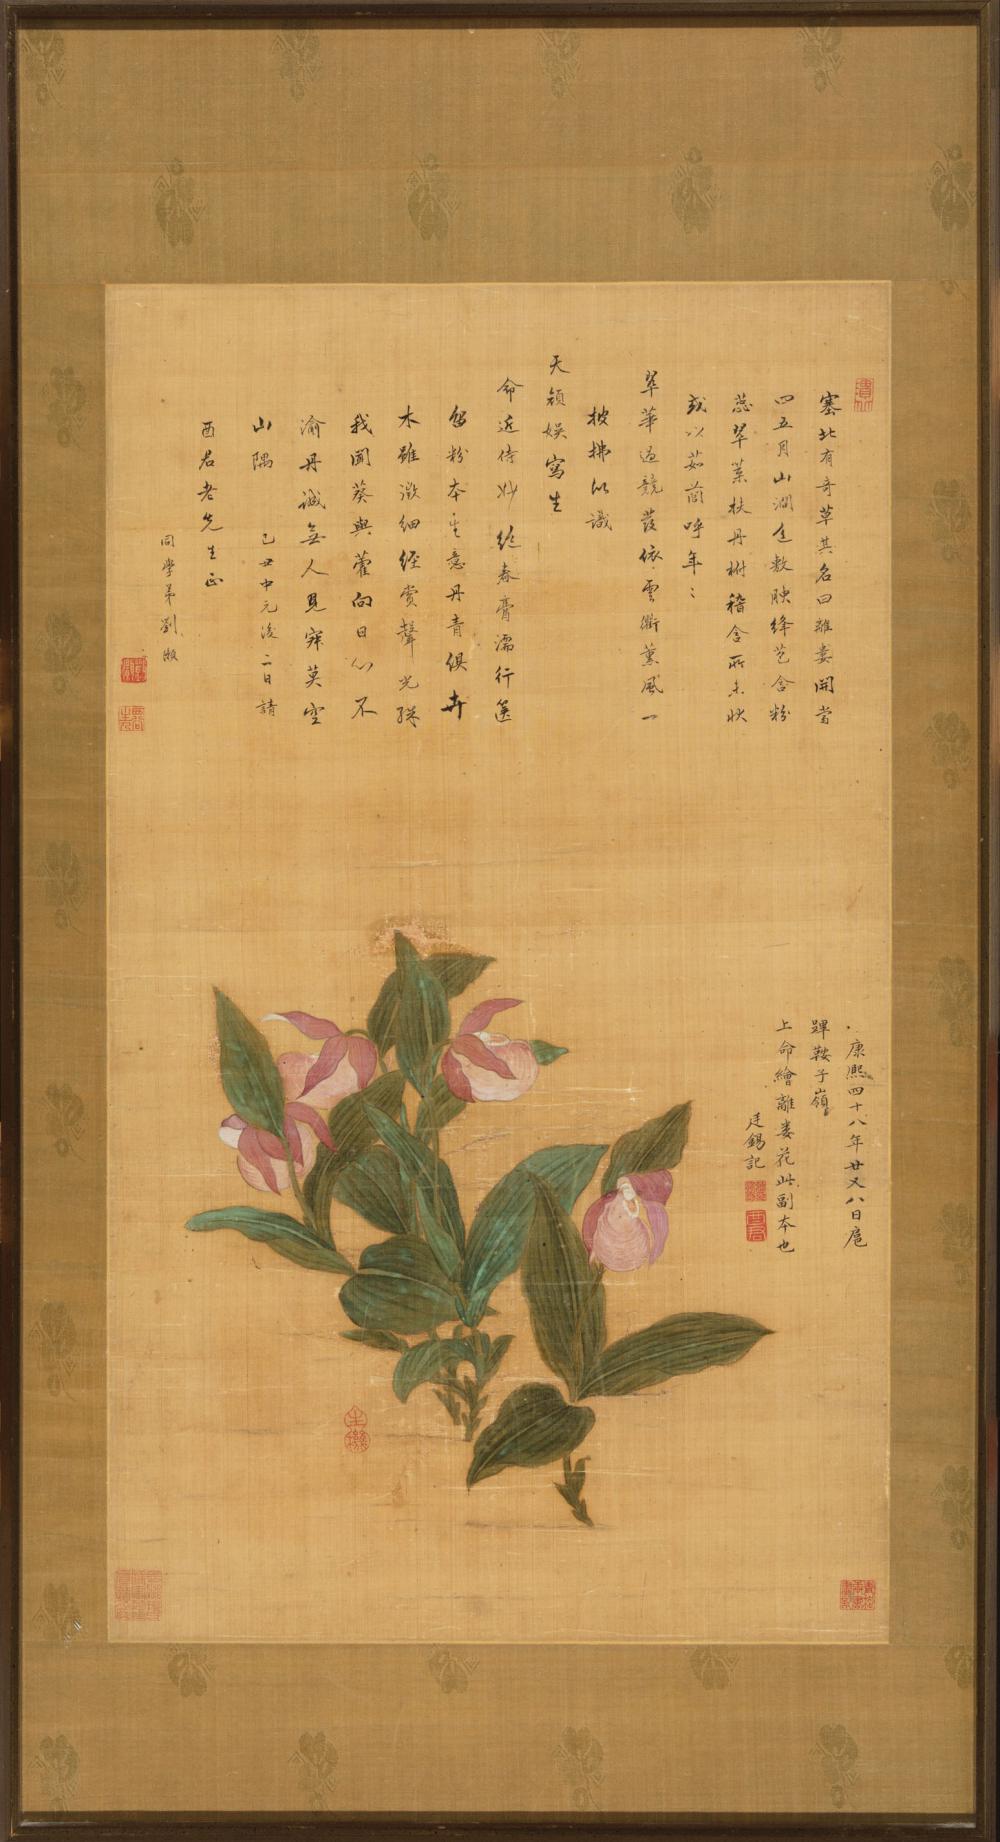 塞北有奇草其名曰離婁開當
四五月山澗遍敷腴絳苞含粉
蕊翠葉扶丹柎嵇含所未狀
或以茹藘呼年〻
翠華過競發依雲衢薰風一
披拂似識
天顏娛寫生
命近侍妙絕春膏濡行篋
留粉本生意丹青俱卉
木雖微細經賞聲光殊
我聞葵與藿向日心不
渝丹誠無人見寂莫空
山隅
己丑中元後二日請
酉君老先生正
同學弟劉
康熙四十八年廿又八日扈
蹕鞍子嶺
上命繪離婁花此副本也
廷錫記
酉君
生機